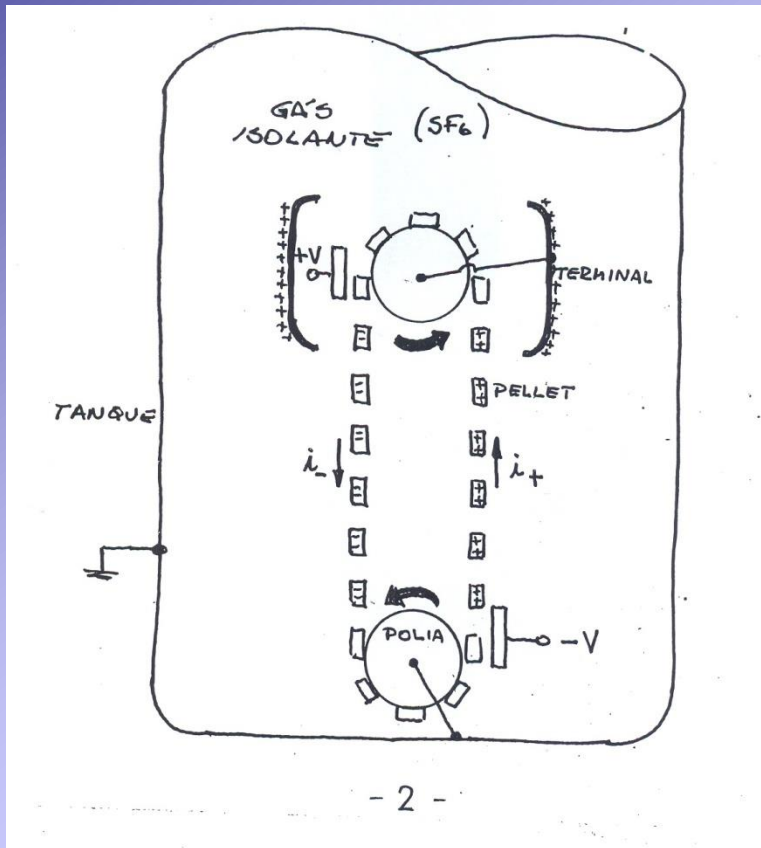 GÁS
ISOLANTE (SF6)
+V
TERMINAL
PELLET
TANQUE
i-
i+
POLIA
-V
- 2 -